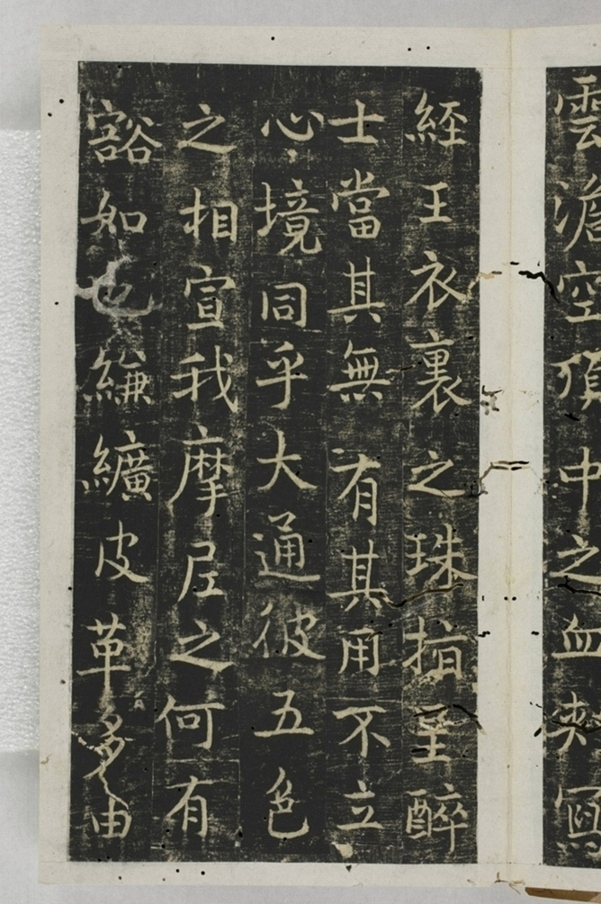 雲澹空頂中之血刺寫
經王衣裏之珠指聖醉
士當其無有其用不立
心境同乎大通彼五色
之相宣我摩尼之何有
豁如也縑纊皮革多由